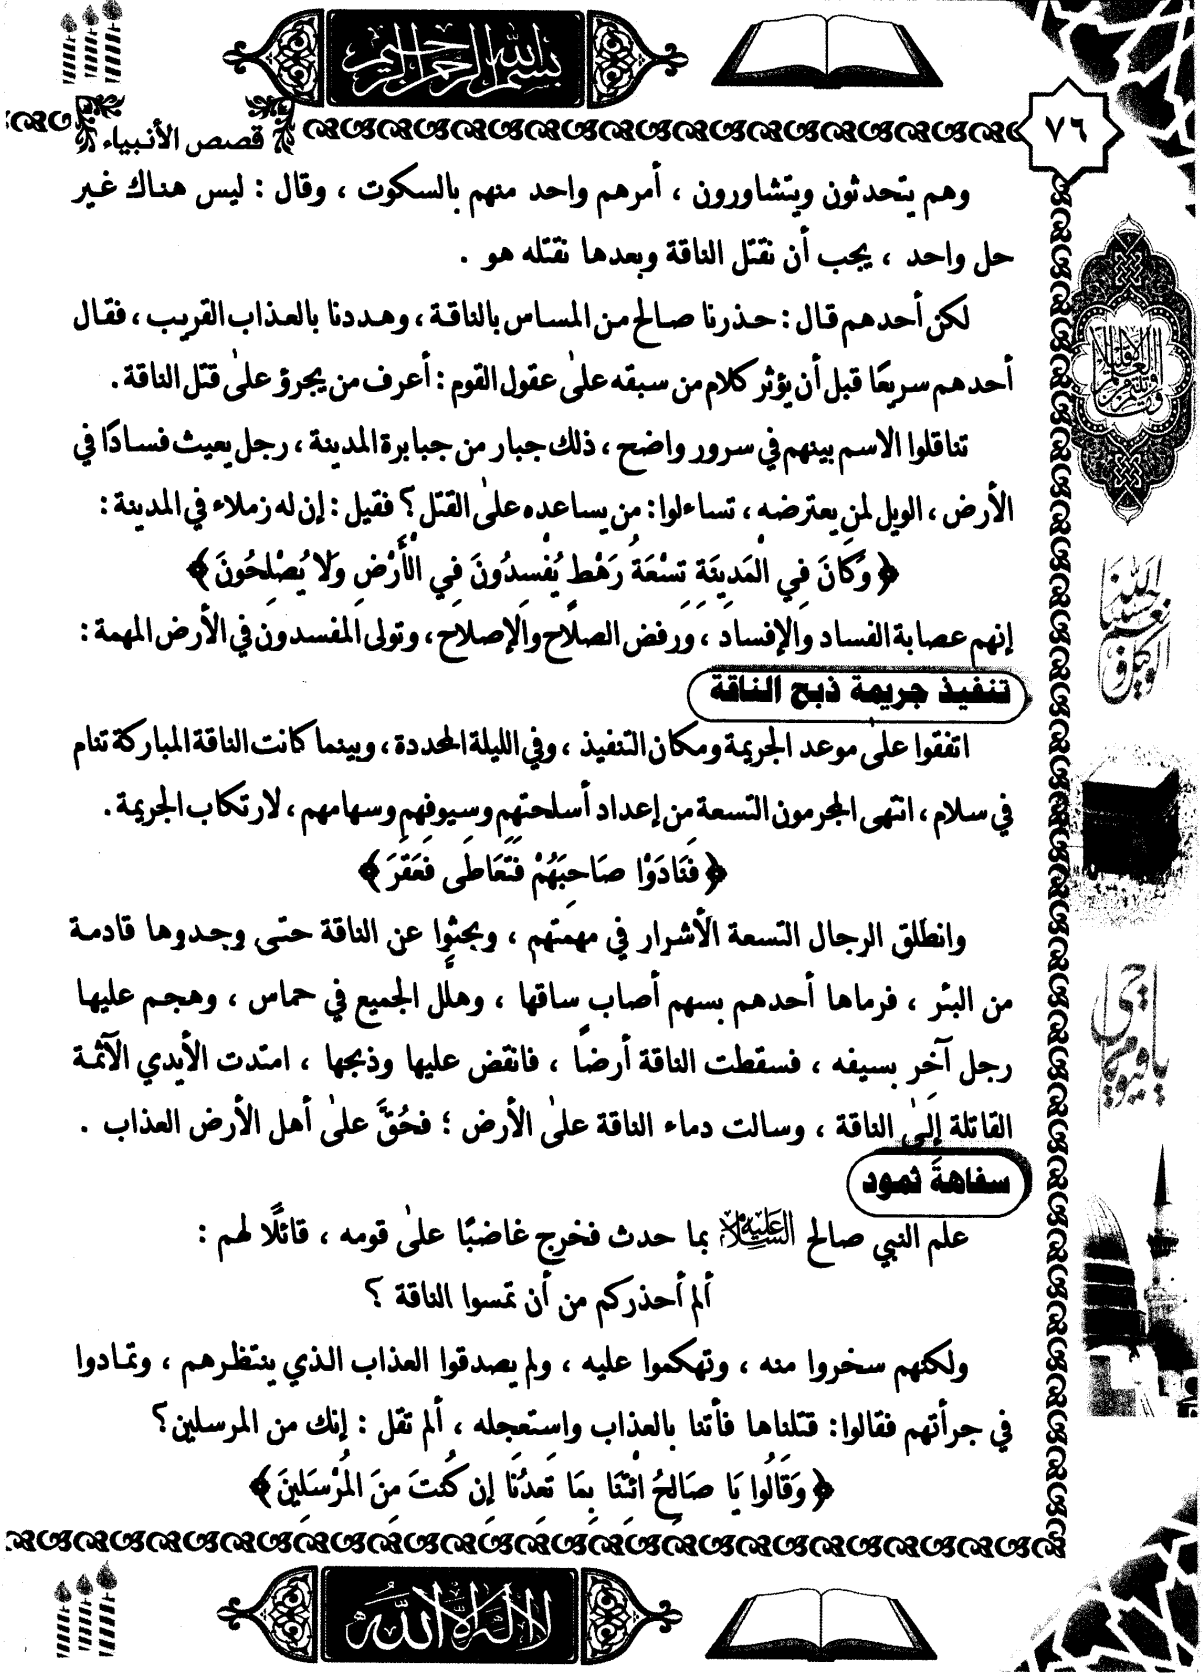 بسم الله الرحمن الرحيم
٧٦
قصص الأنبياء
وهم يتحدثون ويتشاورون ، أمرهم واحد منهم بالسكوت ، وقال : ليس هناك غير
حل واحد ، يجب أن نقتل الناقة وبعدها نقتله هو .
لكن أحدهم قال : حذرنا صالح من المساس بالناقة ، وهددنا بالعذاب القريب ، فقال
أحدهم سريعًا قبل أن يؤثر كلام من سبقه على عقول القوم : أعرف من يجرؤ على قتل الناقة .
تناقلوا الاسم بينهم في سرور واضح ، ذلك جبار من جبابرة المدينة ، رجل يعيث فسادًا في
الأرض ، الويل لمن يعترضه ، تساءلوا : من يساعده على القتل ؟ فقيل : إن له زملاء في المدينة :
﴿ وَكَانَ فِي الْمَدِينَةِ تِسْعَةُ رَهْطٍ يُفْسِدُونَ فِي الْأَرْضِ وَلَا يُصْلِحُونَ ﴾
إنهم عصابة الفساد والإفساد ، ورفض الصلاح والإصلاح ، وتولى المفسدون في الأرض المهمة :
تنفيذ جريمة ذبح الناقة
اتفقوا على موعد الجريمة ومكان التنفيذ ، وفي الليلة المحددة ، وبينما كانت الناقة المباركة تنام
في سلام ، انتهى المجرمون التسعة من إعداد أسلحتهم وسيوفهم وسهامهم ، لارتكاب الجريمة .
﴿ فَنَادَوْا صَاحِبَهُمْ فَتَعَاطَى فَعَقَرَ ﴾
وانطلق الرجال التسعة الأشرار في مهمتهم ، وبحثوا عن الناقة حتى وجدوها قادمة
من البئر ، فرماها أحدهم بسهم أصاب ساقها ، وهلل الجميع في حماس ، وهجم عليها
رجل آخر بسيفه ، فسقطت الناقة أرضًا ، فانقض عليها وذبحها ، امتدت الأيدي الآثمة
القاتلة إلى الناقة ، وسالت دماء الناقة على الأرض ؛ فحُقَّ على أهل الأرض العذاب .
سفاهة ثمود
علم النبي صالح عليه السلام بما حدث فخرج غاضبًا على قومه ، قائلًا لهم :
ألم أحذركم من أن تمسوا الناقة ؟
ولكنهم سخروا منه ، وتهكموا عليه ، ولم يصدقوا العذاب الذي ينتظرهم ، وتمادوا
في جرأتهم فقالوا : قتلناها فأتنا بالعذاب واستعجله ، ألم تقل : إنك من المرسلين ؟
﴿ وَقَالُوا يَا صَالِحُ ائْتِنَا بِمَا تَعِدُنَا إِن كُنتَ مِنَ الْمُرْسَلِينَ ﴾
حسبنا الله ونعم الوكيل
يا حي يا قيوم
لا إله إلا الله